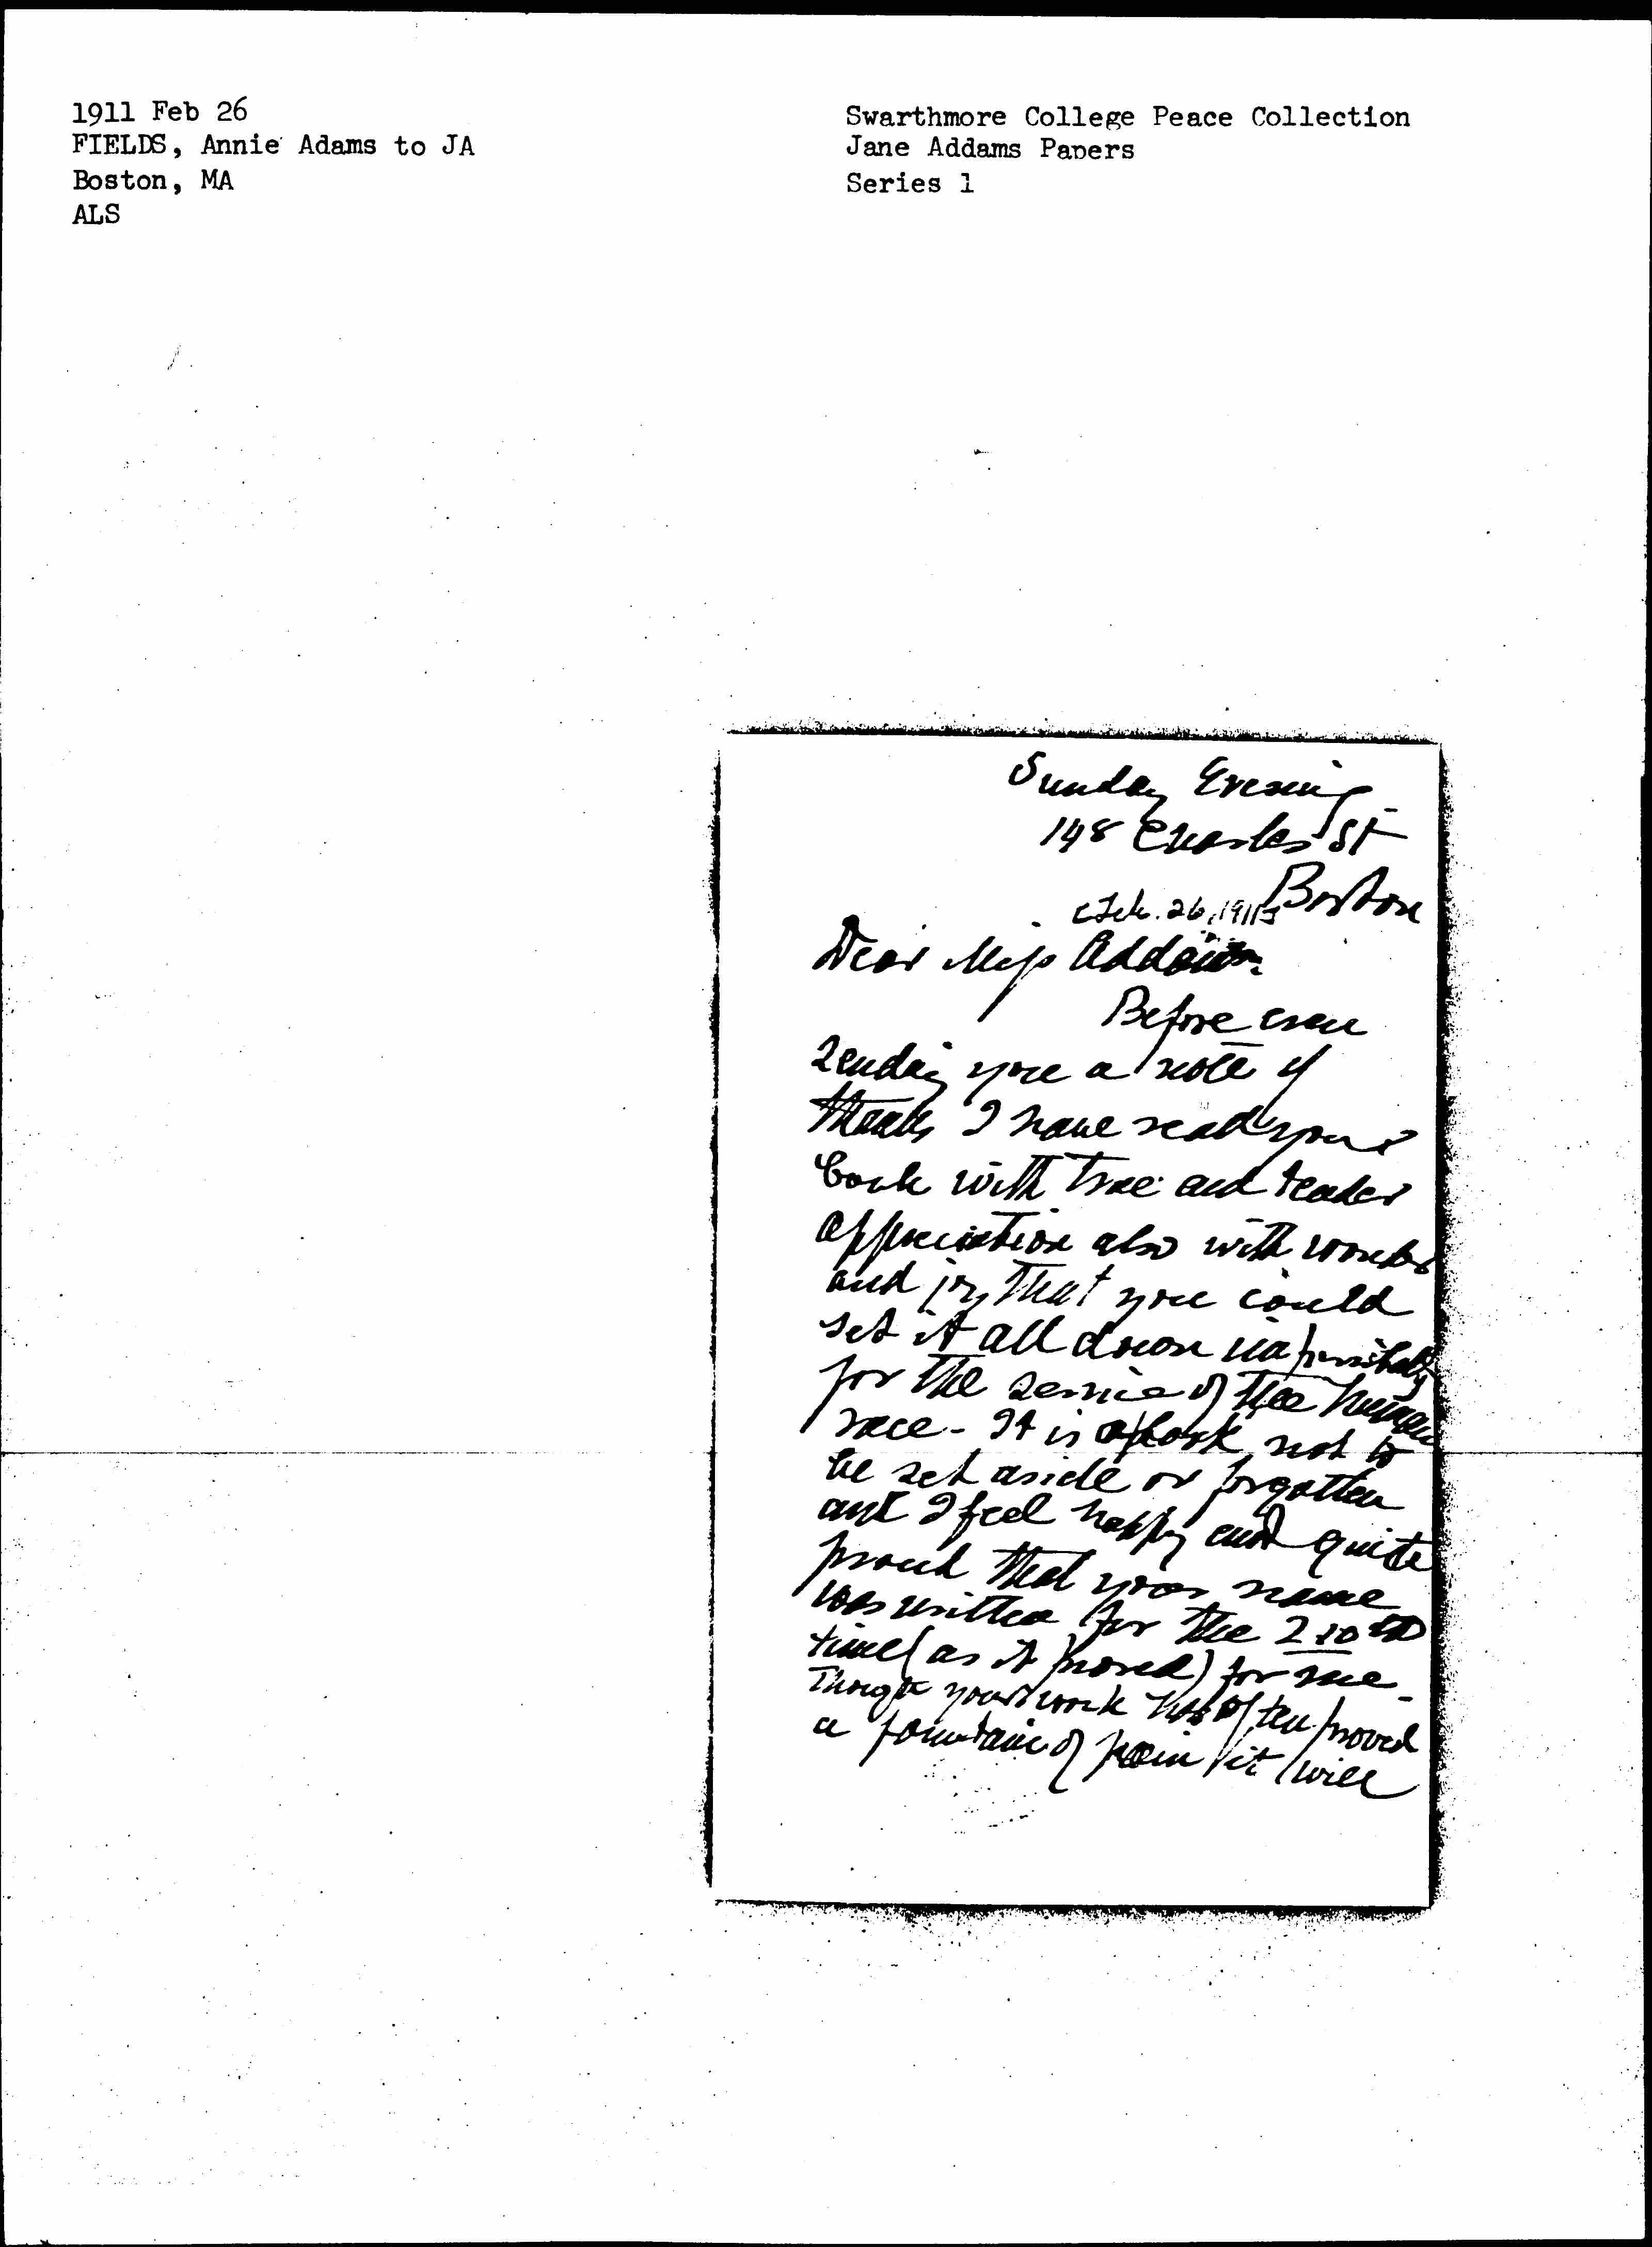 1911 Feb 26
FIELDS, Annie Adams to JA
Boston, MA
ALS
Swarthmore College Peace Collection
Jane Addams Papers
Series 1
Sunday Evening
148 Charles St
Boston
[Feb. 26, 1911]
Dear Miss Addams
Before even
sending you a note of
thanks I have read your
book with true and tender
appreciation also with wonder
and joy that you could
set it all down
for the service of the human
race - It is a book not to
be set aside or forgotten
and I feel happy and quite
proud that your name
was written for the 210th
time (as it proved) for me -
Though your work has often proved
a fountain of pain it will